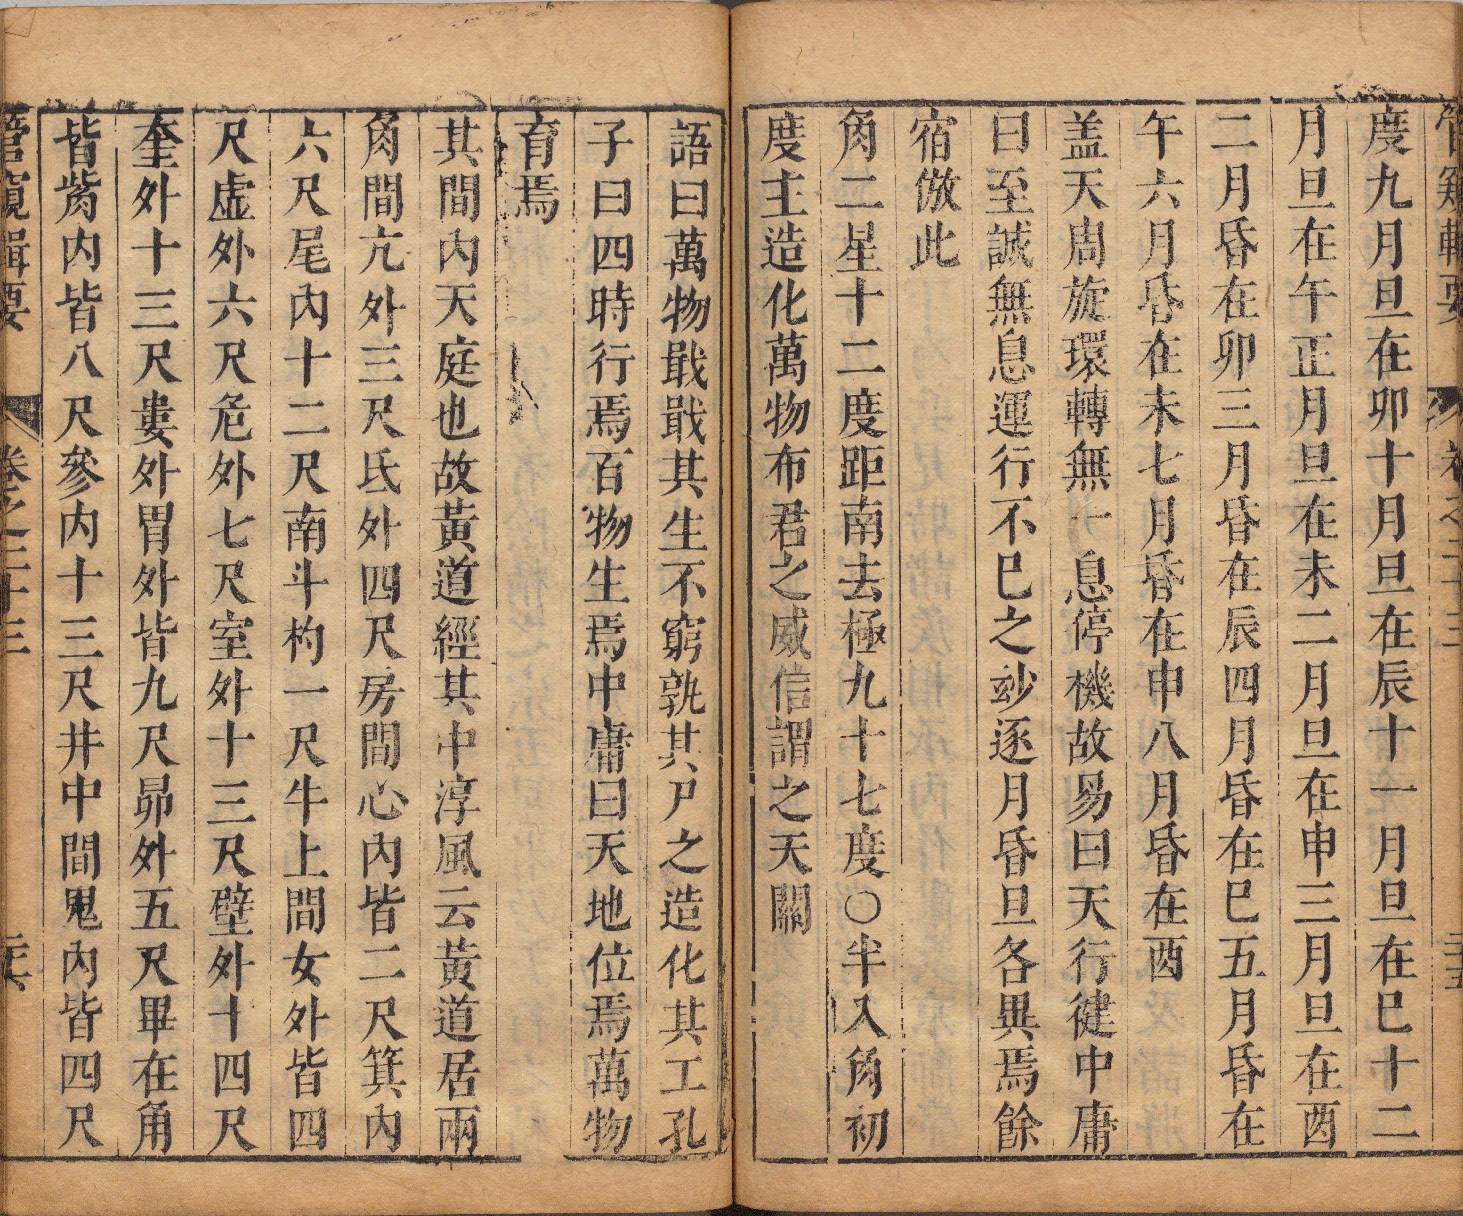 管窺輯要
卷之二十三
二十五
度九月旦在卯十月旦在辰十一月旦在巳十二
月旦在午正月旦在未二月旦在申三月旦在酉
二月昏在卯三月昏在辰四月昏在巳五月昏在
午六月昏在未七月昏在申八月昏在酉
盖天周旋環轉無一息停機故易曰天行健中庸
曰至誠無息運行不巳之玅逐月昏旦各異焉餘
宿倣此
角二星十二度距南去極九十七度〇半入角初
度主造化萬物布君之威信謂之天關
語曰萬物戢戢其生不窮孰其尸之造化其工孔
子曰四時行焉百物生焉中庸曰天地位焉萬物
育焉
其間內天庭也故黃道經其中淳風云黃道居兩
角間亢外三尺氐外四尺房間心內皆二尺箕內
六尺尾內十二尺南斗杓一尺牛上間女外皆四
尺虛外六尺危外七尺室外十三尺壁外十四尺
奎外十三尺婁外胃外皆九尺昴外五尺畢在角
皆觜內皆八尺參內十三尺井中間鬼內皆四尺
管窺輯要
卷之二十三
二十六